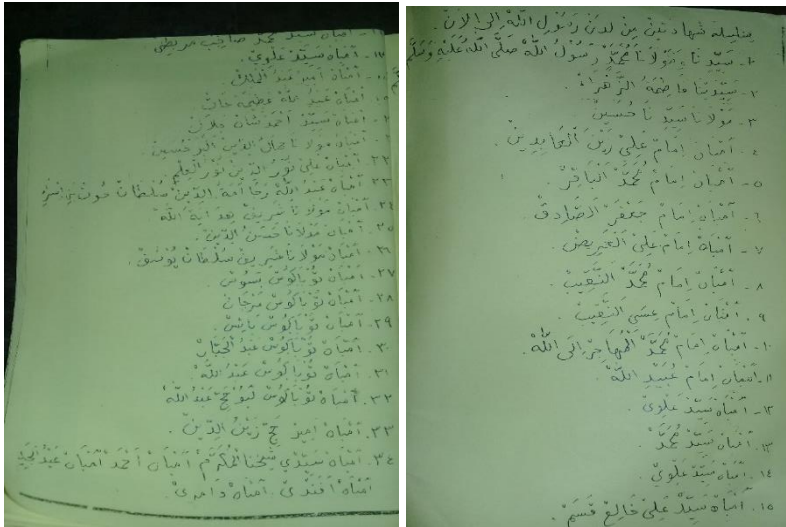 سلسلة شهادتين مِنْ لَدُنْ رَسُوْلِ اللهْ اِلَى الاَنْ.
١- سَيِّدِنَا وَمَوْلَانَا مُحَمَّدْ رَسُوْلُ اللهْ صَلَّى اللهُ عَلَيْهِ وَسَلَّمْ
٢- سَيِّدَتِنَا فَاطِمَةُ الزَّهْرَاءْ.
٣- مَوْلَانَا سَيِّدِنَا حُسَيْن.
٤- اَمْبَاهْ اِمَامْ عَلِيْ زَيْنَ الْعَابِدِيْن.
٥- اَمْبَاهْ اِمَامْ مُحَمَّدْ الْبَاقِرْ.
٦- اَمْبَاهْ اِمَامْ جَعْفَرْ الصَّادِقْ.
٧- اَمْبَاهْ اِمَامْ عَلِىْ الْعُرَيْضْ.
٨- اَمْبَاهْ اِمَامْ مُحَمَّدْ النَّقِيْبْ.
٩- اَمْبَاهْ اِمَامْ عِسَى النَّقِيْبْ.
١٠- اَمْبَاهْ اِمَامْ مُحَمَّدْ الْمُهَاجِرْ اِلَى اللهْ.
١١- اَمْبَاهْ اِمَامْ عُبَيْدِ اللهْ.
١٢- اَمْبَاهْ سَيِّدْ عَلَوِىْ.
١٣- اَمْبَاهْ سَيِّدْ مُحَمَّدْ.
١٤- اَمْبَاهْ سَيِّدْ عَلَوِىْ.
١٥- اَمْبَاهْ سَيِّدْ عَلِىْ خَالِعْ قَسَمْ.
اَمْبَاهْ سَيِّدْ مُحَمَّدْ صَاحِبْ مربطى
١٧- اَمْبَاهْ سَيِّدْ عَلَوِىْ.
اَمْبَاهْ اَمِيْر عَبْدُ الْمَالِكْ
اَمْبَاهْ عَبْدُ اللهْ عَظَمَةْ خَانْ
اَمْبَاهْ سَيِّدْ اَحْمَدْ شَاهْ جَلَالْ
اَمْبَاهْ مَوْلَانَا جَمَالُ الدِّيْن الْحُسَيْن
٢٢- اَمْبَاهْ عَلِىْ نُوْرُ الدِّيْن نُوْرُ الْعَلِمْ
٢٣- اَمْبَاهْ عَبْدُ اللهْ الدِّيْنْ سُلْطَانْ
٢٤- اَمْبَاهْ مَوْلَانَا شَرِيْفْ اللهْ
٢٥- اَمْبَاهْ مَوْلَانَا حَسَنُ الدِّيْن.
٢٦- اَمْبَاهْ مَوْلَانَا سُلْطَانْ يُوْسُفْ.
٢٧- اَمْبَاهْ تُوْبَاكُوْسْ
٢٨- اَمْبَاهْ تُوْبَاكُوْسْ مَرْجَانْ
٢٩- اَمْبَاهْ تُوْبَاكُوْسْ
٣٠- اَمْبَاهْ تُوْبَاكُوْسْ عَبْدُ الْجَبَّارْ
٣١- اَمْبَاهْ تُوْبَاكُوْسْ عَبْدُ اللهْ
٣٢- اَمْبَاهْ تُوْبَاكُوْسْ حَجّ عَبْدُ اللهْ
٣٣- اَمْبَاهْ حَجّ زَيْنُ الدِّيْن.
٣٤- اَمْبَاهْ اَمْبَاهْ اَحْمَدْ اَمْبَاهْ
اَمْبَاهْ اَفَنْدِىْ. اَمْبَاهْ